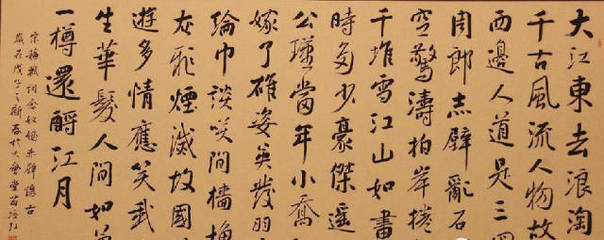 大江東去浪淘
千古風流人物故
西邊人道是三
周郎赤壁亂石
空驚濤拍岸捲
千堆雪江山如畫
時多少豪傑遙
公瑾當年小喬
嫁了雄姿英發羽
綸巾談笑間檣
灰飛煙滅故國
遊多情應笑我
生華髮人間如
一樽還酹江月
宋蘇軾詞念奴嬌赤壁懷古
歲在戊子之新春於